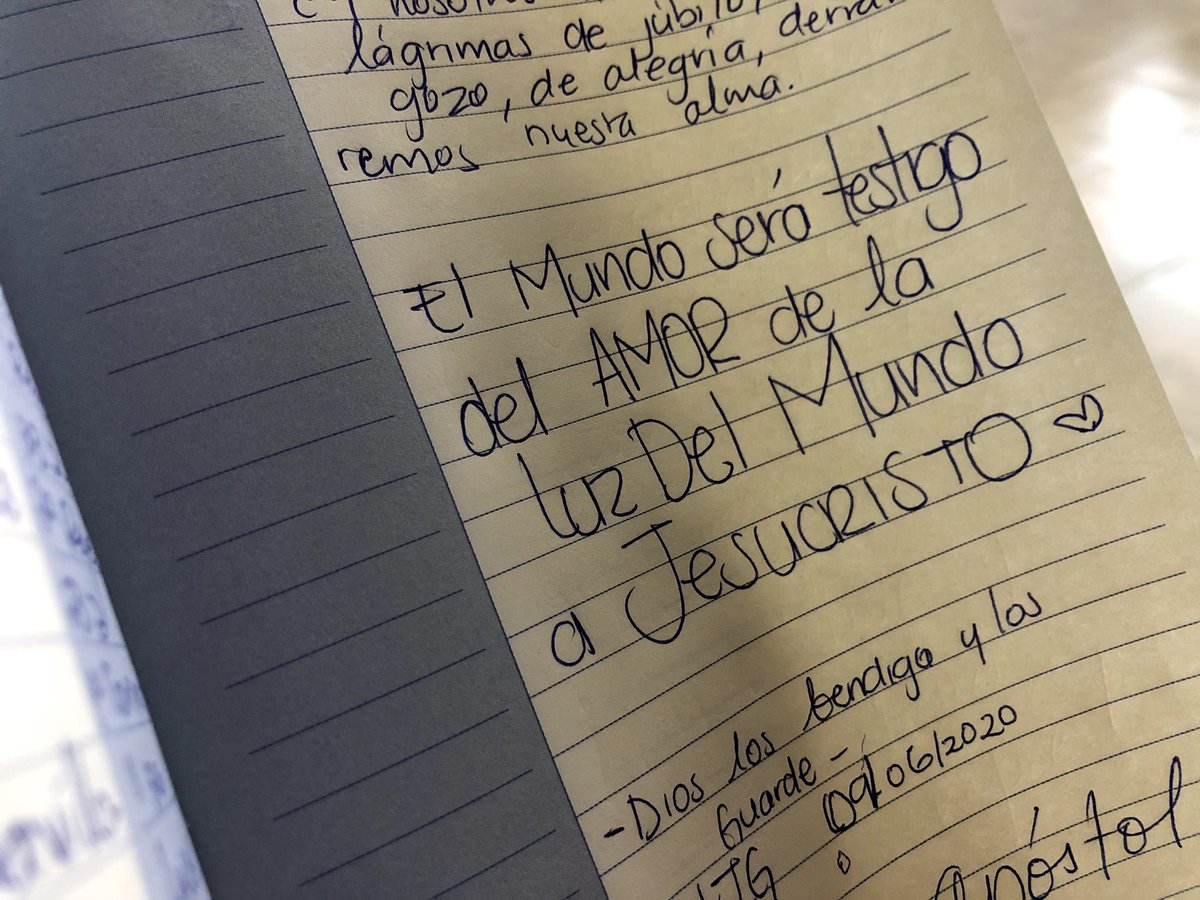 lágrimas de júbilo,
gozo, de alegría, derra
remos nuestra alma.
El Mundo será testigo
del AMOR de la
luz Del Mundo
a JESUCRISTO
-Dios los bendiga y los
Guarde-
09/06/2020
Apóstol